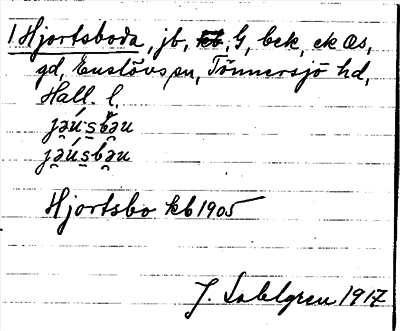 1 Hjortsboda, jb, G, bek, ek Os,
gd, Enslövs sn, Tönnersjö hd,
Hall. l.
jə̯ú·s̯bə̯u
jə̯ús̯bə̯u
Hjortsbo kb 1905
J. Sahlgren 1917